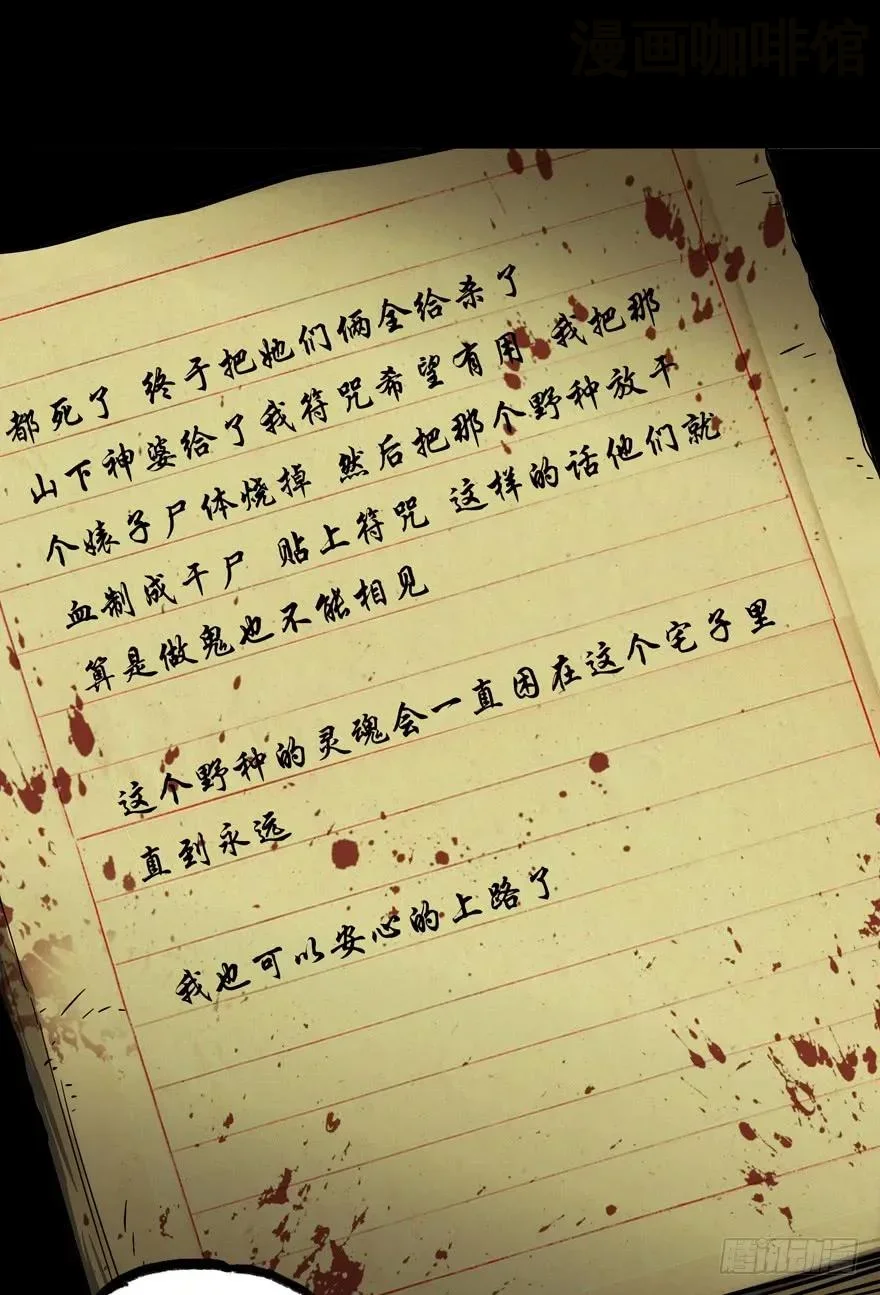 漫画咖啡馆
都死了 终于把她们俩全给杀了
山下神婆给了我符咒希望有用 我把那
个婊子尸体烧掉 然后把那个野种放干
血制成干尸 贴上符咒 这样的话他们就
算是做鬼也不能相见
这个野种的灵魂会一直困在这个宅子里
直到永远
我也可以安心的上路了
腾讯动漫